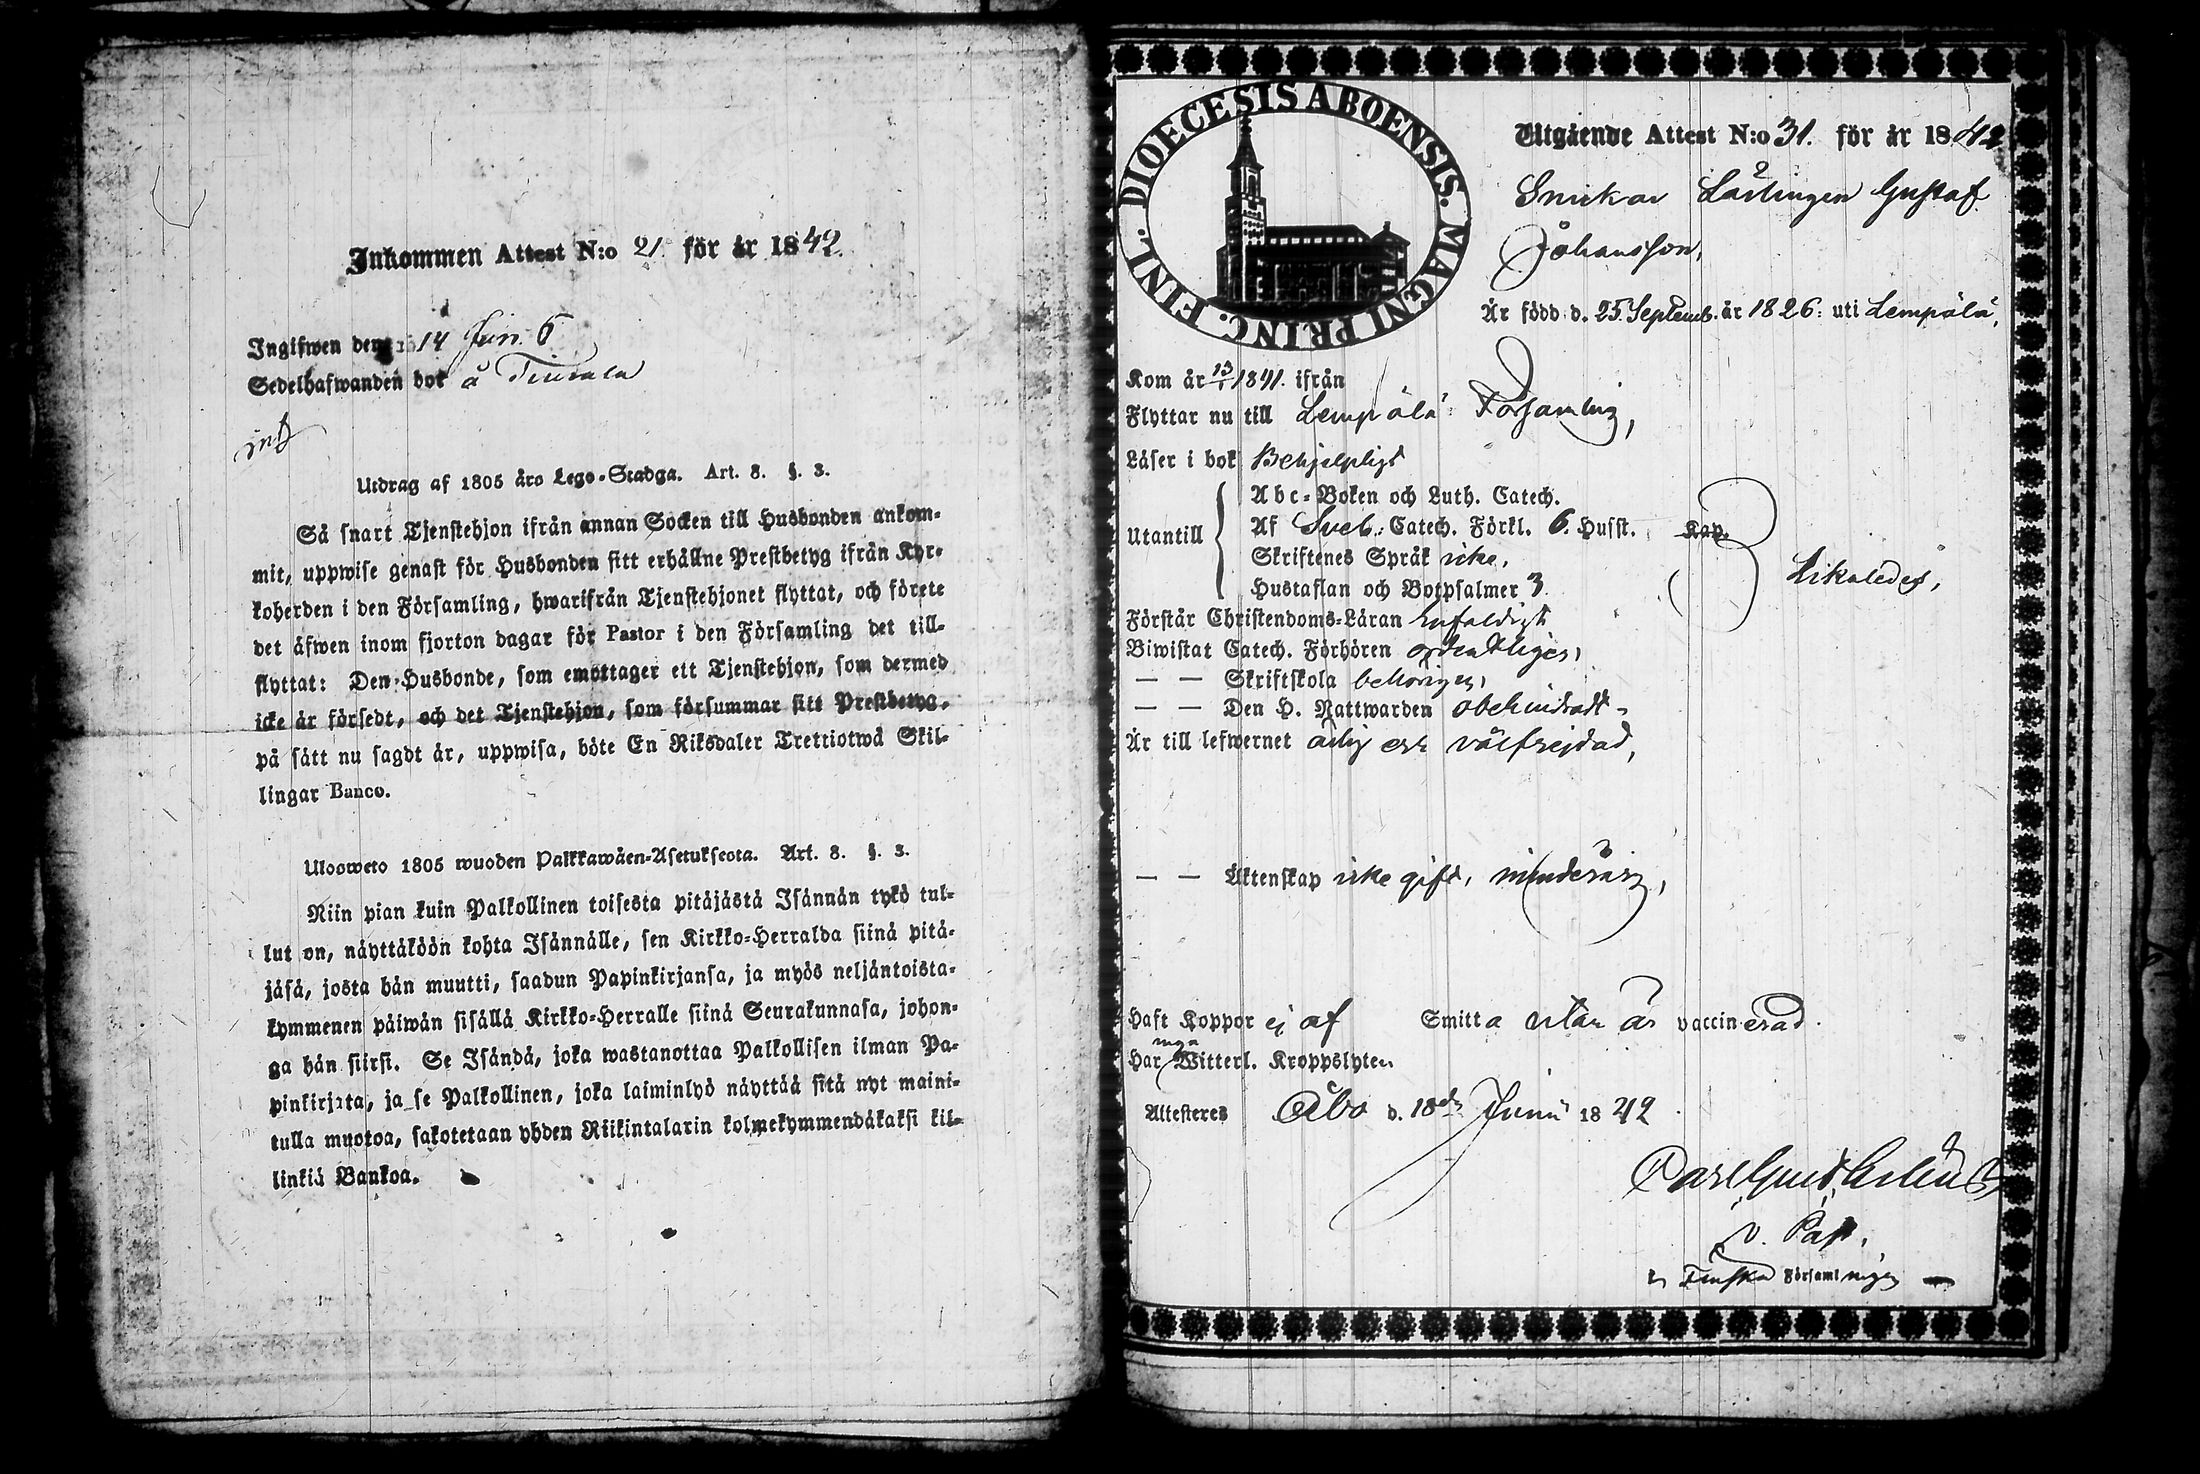 Inkommen Attest N:o 21. för år 1842.
Ingifwen den 14 Jun
Sedelhafwanden bor å
Utdrag af 1805 års Lego-Stadga. Art. 8. §. 3.
Så snart Tjenstehjon ifrån annan Socken till Husbonden ankom-
mit, uppwise genast för Husbonden sitt erhållne Prestbetyg ifrån Kyr-
koherden i den Församling, hwarifrån Tjenstehjonet flyttat, och förete
det äfwen inom fjorton dagar för Pastor i den Församling det till-
flyttat: Den Husbonde, som emottager ett Tjenstehjon, som dermed
icke är försedt, och det Tjenstehjon, som försummar sitt Prestbetyg,
på sätt nu sagdt är, uppwisa, böte En Riksdaler Trettiotwå Skil-
lingar Banco.
Ulosweto 1805 wuoden Palkkawäen-Asetuksesta. Art. 8. §. 3.
Niin pian kuin Palkollinen toisesta pitäjästä Isännän tykö tul-
lut on, näyttäköön kohta Isännälle, sen Kirkko-Herralda siinä pitä-
jäsä, josta hän muutti, saadun Papinkirjansa, ja myös neljäntoista-
kymmenen päiwän sisällä Kirkko-Herralle siinä Seurakunnasa, johon-
ga hän siirsi. Se Isändä, joka wastanottaa Palkollisen ilman Pa-
pinkirjata, ja se Palkollinen, joka laiminlyö näyttää sitä nyt maini-
tulla muotoa, sakotetaan yhden Riikintalarin kolmekymmendäkaksi kil-
linkiä Bankoa.
DIOECESIS ABOENSIS. MAGNI PRINC. FINL.
Utgående Attest N:o 31. för år 1842
Snickar Lärlingen Gustaf
Johansson,
Är född d. 25. Septemb. år 1826. uti Lempälä,
Kom år 13/1 1841. ifrån
Flyttar nu till Lempälä Församling,
Läser i bok Behjelpligt
Utantill
Abc-Boken och Luth. Catech.
Af Sveb. Catech. Förkl. 6. Husst. Kap.
Skriftenes Språk icke,
Hustaflan och Botpsalmer 3
Likaledes,
Förstår Christendoms-Läran enfaldigt
Biwistat Catech. Förhören ordentligen,
— — Skriftskola behörigen,
— — Den H. Nattwarden obehindradt
Är till lefwernet ärlig och välfrejdad,
— — Äktenskap icke gift, minderårig,
Haft Koppor ej af Smitta utan är vaccinerad.
Har inga Witterl. Kroppslyten
Attesteres Åbo d. 18de Junii 1842
v. Past.
i Finska Församlingen